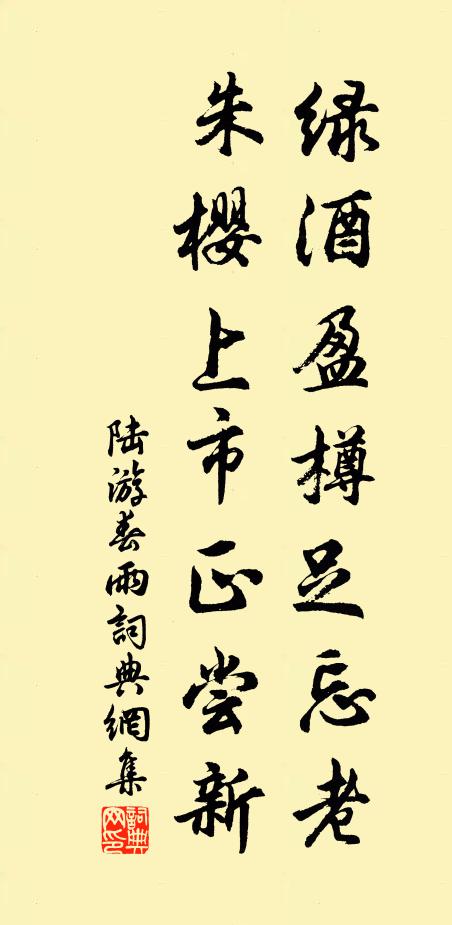 绿酒盈樽足忘老
朱樱上市正尝新
陆游春雨詞典網集
詞典网印